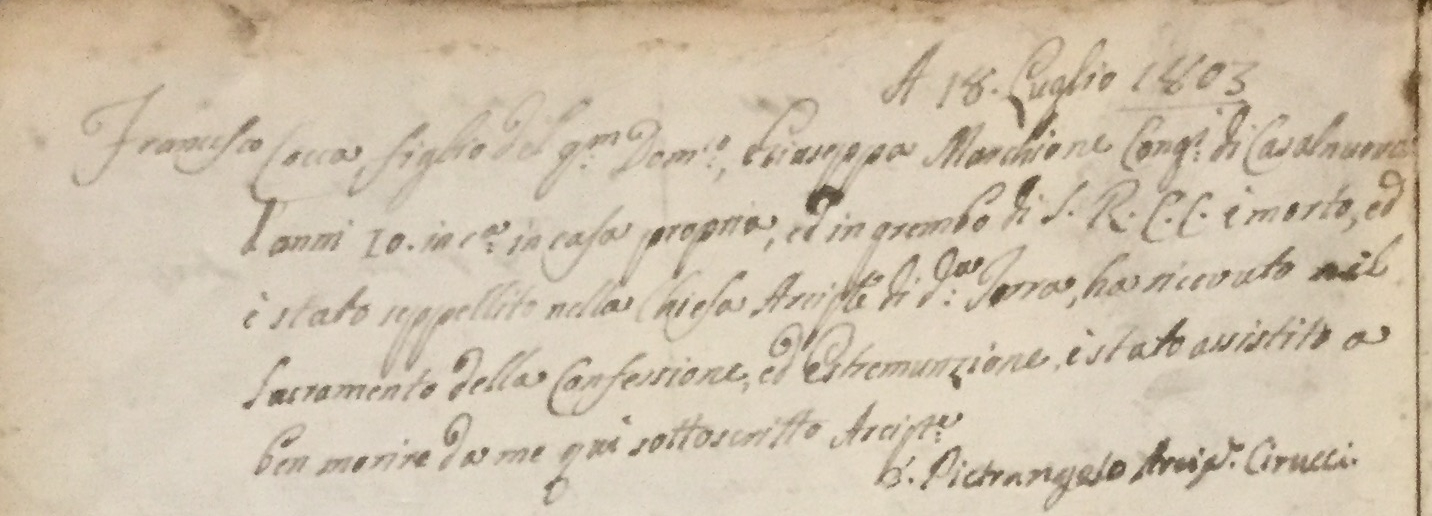 A 18. Luglio 1803
Francesco Cocca, figlio del q.m Dom.o, e Giuseppa Marchione Cong.i di Casalnuovo
d'anni 10. in c.a in casa propria, ed in grembo di S. R. C. C. è morto, ed
è stato seppellito nella Chiesa Arcip.le di d.a Terra, ha ricevuto il
Sacramento della Confessione, ed Estremunzione, è stato assistito a
ben morire da me qui sottoscritto Arcip.te
D. Pietrangelo Arcip.e Cirucci.